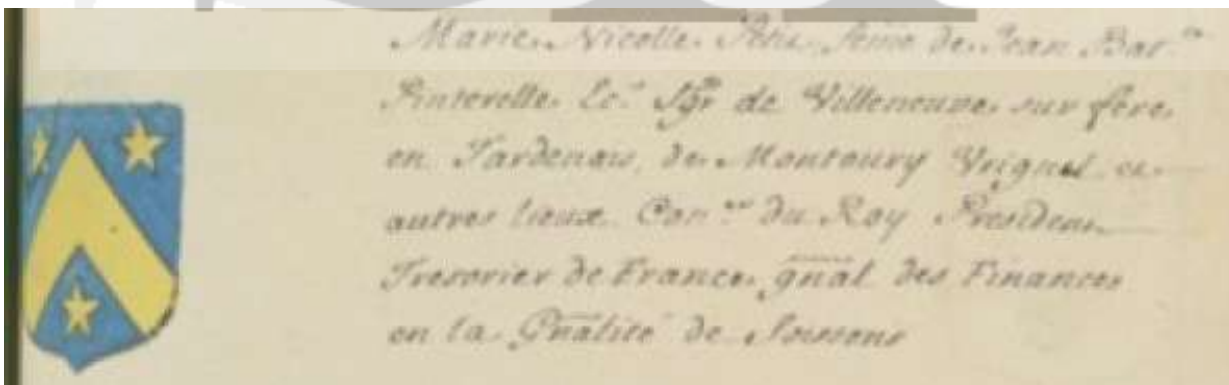 Marie Nicolle Petit feme de Jean Bar.
Pinterelle Ec.r Sgr de Villeneuve sur fere
en Tardenois, de Montoury Vrignel et
autres lieux Con.er du Roy President
Tresorier de France gnâl des Finances
en la Gnalité de Soissons